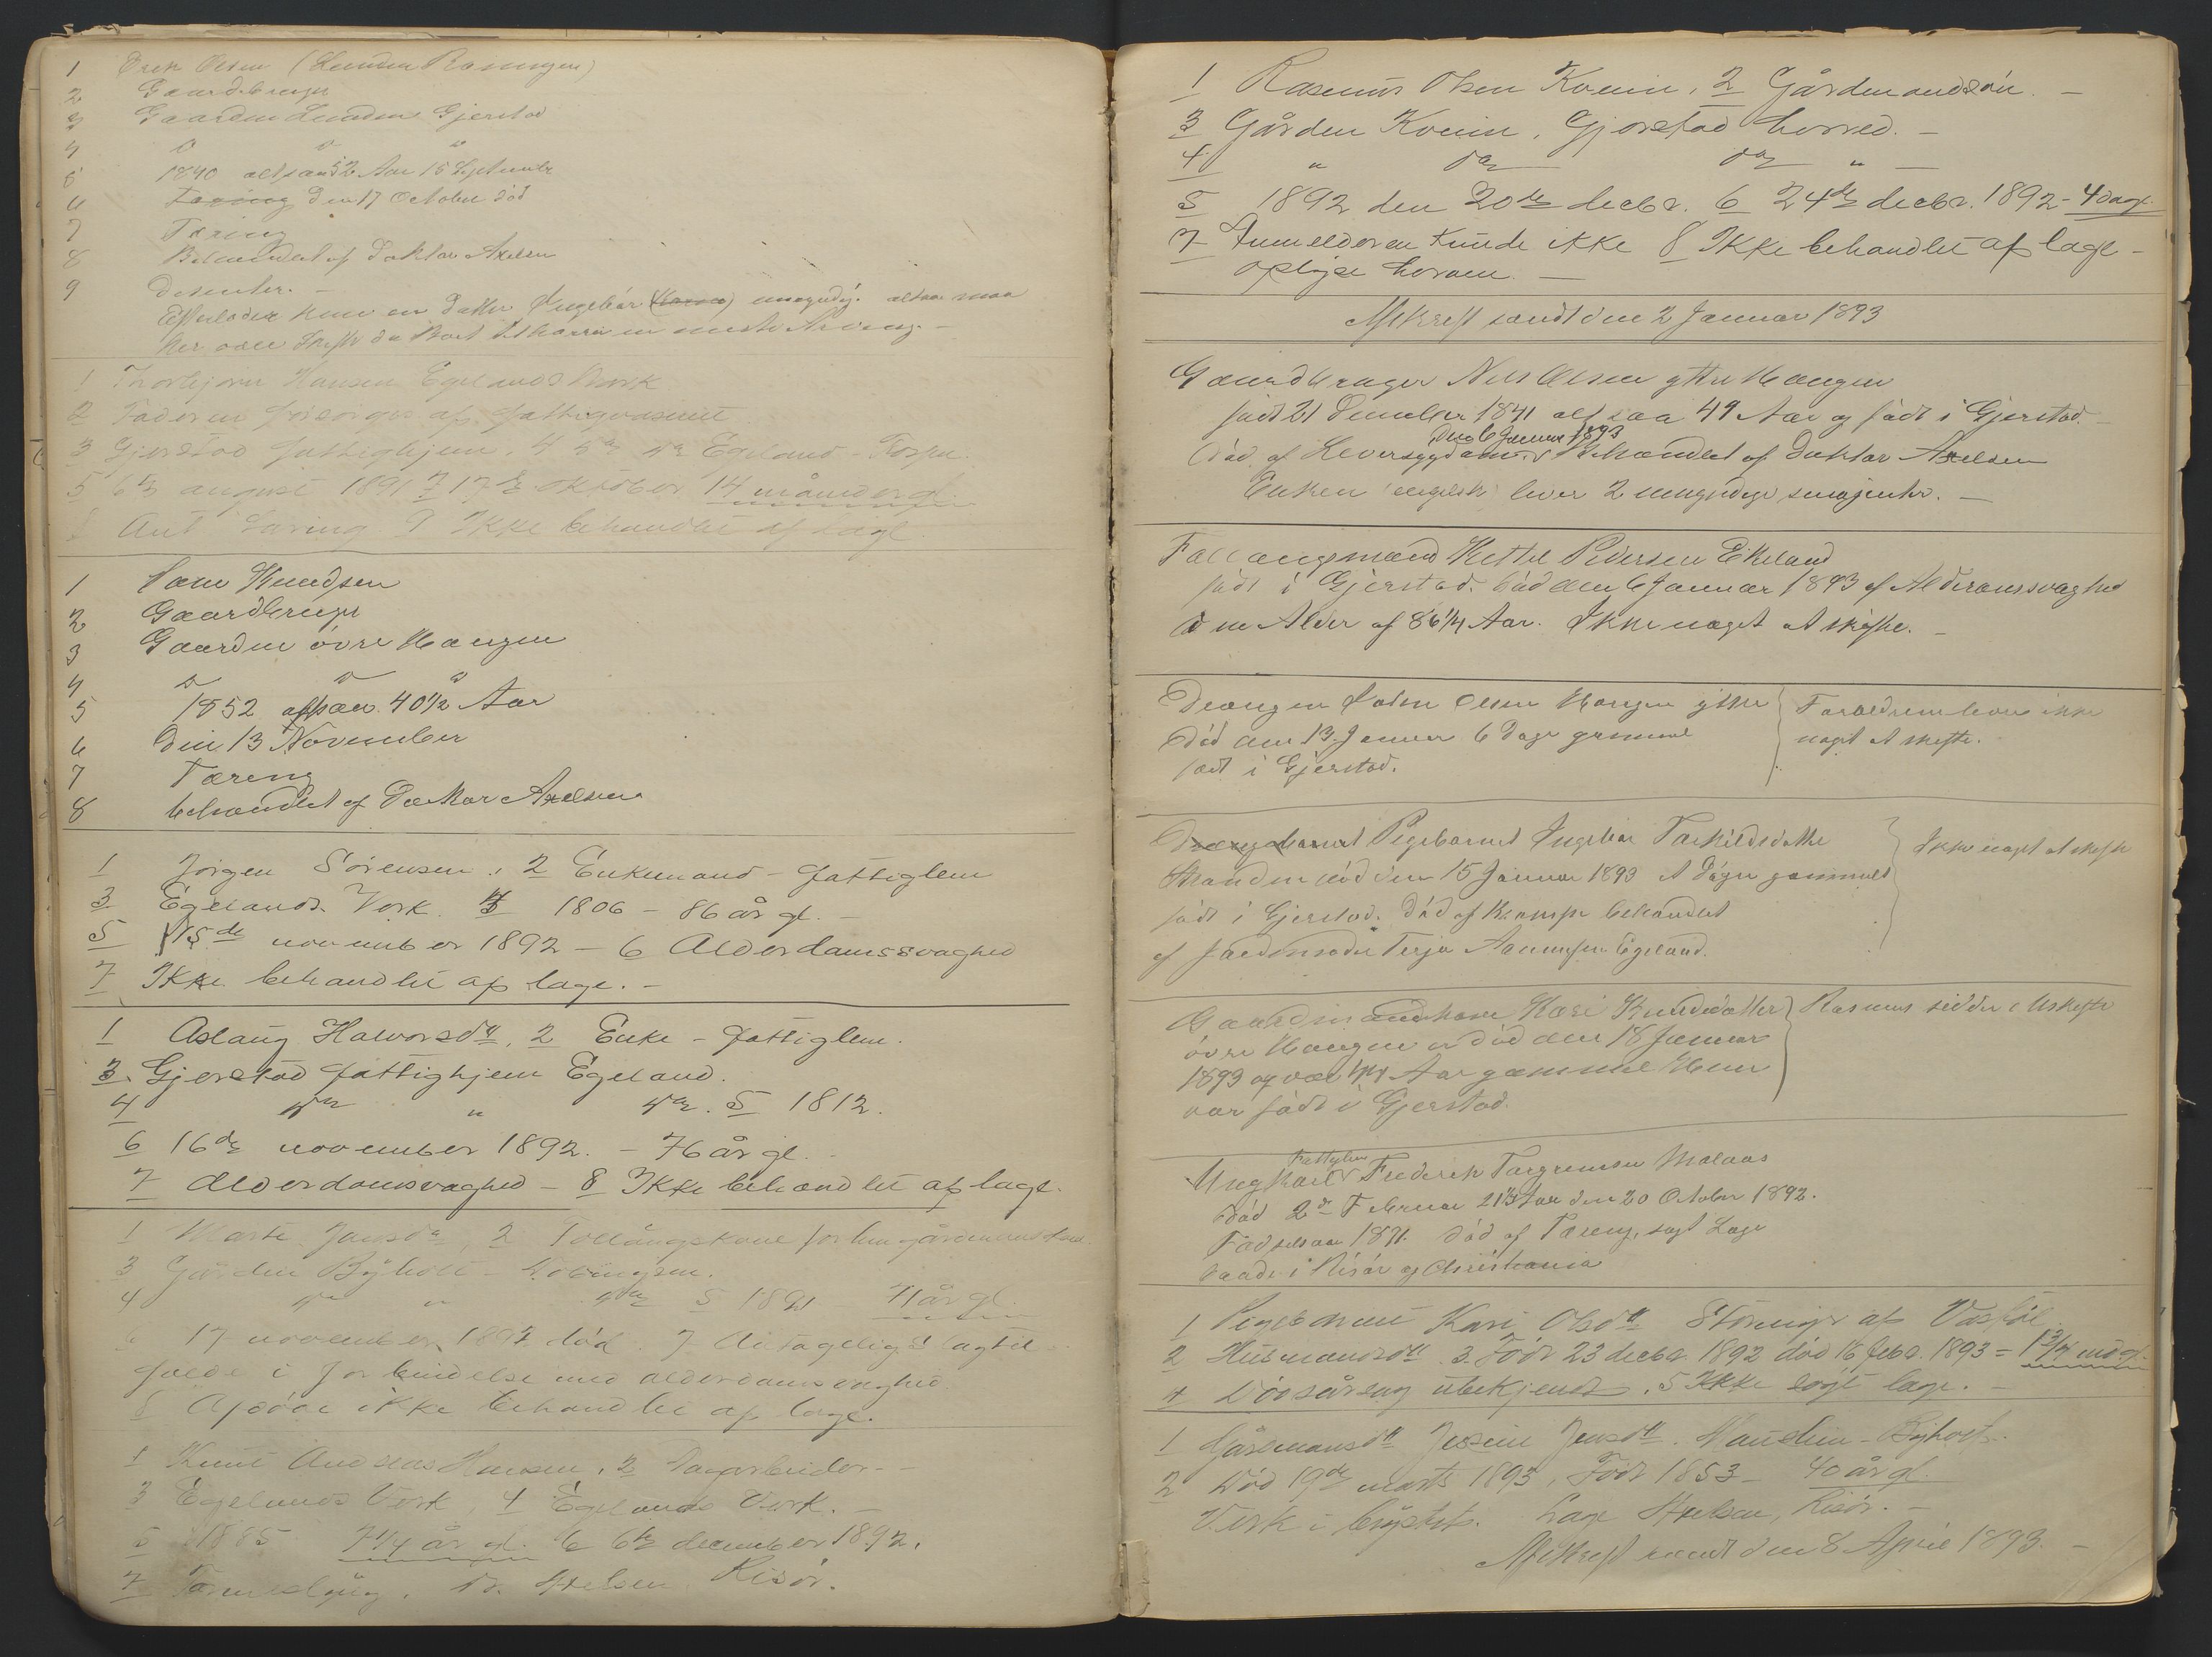 1 Erik Olsen (Lunden
2 Gaardbruger
3 Gaarden Lunden Gjerstad
4 " " "
5 1840 altsaa 52 Aar 15 September
6 Tæring den 17 October död
7 Tæring
8 Behandlet af Doktor Axelsen
9 Desenter. -
Efterlader kun en datter Ingebår umyndig. altsaa maa
her være Skifte da
1 Thorbjørn Hansen Egelands Værk
2 Faderen forsörges af fattigvæsenet
3 Gjerstad fattighjem, 4 da da Egeland
5 6te august 1891 7 17de oktober 14 måneder gl.
Ant. tæring 9 Ikke behandlet af læge
1 Knudsen
2 Gaardbruger
3 Gaarden övre Haugen
4 " " "
5 1852 altsaa 40 1/2 Aar
6 Den 13 November
7 Tæring
8 behandlet af Doktor Axelsen
1 Jörgen Sörensen, 2 Enkemand - fattiglem
3 Egelands Verk. 4 1806 - 86 år gl. -
5 15de november 1892 - 6 Alderdomssvaghed
7 Ikke behandlet af læge. -
1 Aslaug Halvorsdtr, 2 Enke - fattiglem.
3. Gjerstad fattighjem Egeland.
4 da " da. 5 1812.
6 16de november 1892. - 76 år gl. -
7 Alderdomsvaghed - 8 Ikke behandlet af læge.
1 Marte Jensdtr, 2 Follaugskone forhen gårdmandskone
3 Gården Byholt -
4 da " da 5 1821 71 år gl.
6 17 november 1892 död. 7 Antagelig Slagtil-
fælde i forbindelse med alderdomsvaghed
8 ikke behandlet af læge.
1 Knut Andreas Hansen, 2
3 Egelands Verk, 4 Egelands Verk. -
5 1885 7 1/4 år gl. 6 6te december 1892.
7 Dr. Axelsen Risör.
1 Rasmus Olsen Kveim, 2 Gårdemandssön. -
3 Gården Kveim, Gjerstad herred. -
4 " da da " -
5 1892 den 20de decbr. 6 24de decbr. 1892 - 4 dage.
7 Anmelderen kunde ikke 8 Ikke behandlet af læge -
oplyse herom. -
Afskrift sendt den 2 Januar 1893
Gaardbruger Nils Olsen yttre Haugen
födt 21 Desember 1841 altsaa 49 Aar og födt i Gjerstad. -
den 6 Januar 1893
Död af Leversygdom. Behandlet af Doktor Axelsen
Enken lever 2 umyndige smajenter. -
Follaugsmand Kettel Pedersen Eikeland
födt i Gjerstad. död den 6 Januar 1893 af Alderomssvaghed
i en Alder af 86 1/4 Aar. Ikke noget at skifte. -
Drængen Olsen Haugen yttre
Död den 13. Januar 6 Dage gammel
födt i Gjerstad.
Foreldrene lever ikke
noget at skifte.
Drængebarnet Pigebarnet Ingebår Tarkildsdatter
Stranden död den 15 Januar 1893 Dage gammelt
födt i Gjerstad. Död af Krampe behandlet
af Jordmoder Terje Aanunsen Egeland.
Ikke noget at skifte
Gaardmandskone Kari Knudsdatter
övre Haugen er död den 18 Januar
1893 og var Aar gammel Hun
var födt i Gjerstad.
Rasmus sidder i Uskifte
Fattiglem
Ungkarl Frederik Targrimsen Molaas
Död 2de Februar 21 Aar den 20 October 1892.
Födselsaar 1871. Död af Tæring, sögt Læge
baade i Risör og Christiania
1 Pigebarnet Kari Olsdtr
2 Husmandsdtr. 3. Född 23 decbr. 1892 död 16 febr. 1893 = 1 3/4 md gl.
4 Dödsårsag ubekjendt. 5 Ikke sögt læge. -
1 Gårdmansdtr Jensdtr. - Byholt.
2 Död 19de marts 1893, Född 1853 - 40 år gl.
Verk i brystet. Læge Axelsen, Risör. -
Afskrift sendt den 8 April 1893. -